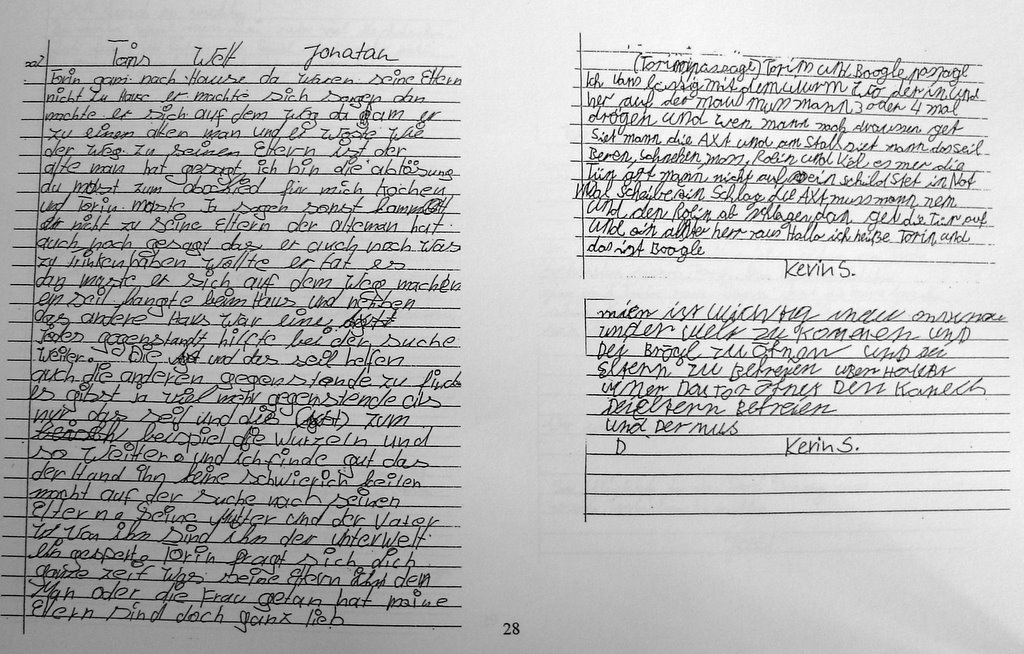 Torins Welt Jonatan
Torin gam nach Hause da waren seine Eltern
nicht zu Hause er machte sich sorgen dan
machte er sich auf dem Weg da gam er
zu einem alten man und er wuste wie
der weg zu seinen Eltern ist der
alte man hat gesagt ich bin die ablösung
du must zum abschied für mich kochen
und Torin muste Ja sagen sonst kommt
er nicht zu seine Eltern der alteman hat
auch noch gesagt das er auch noch was
zu trinken haben wollte er tat es
dan muste er sich auf dem Weg machen
ein seil hangte beim Haus und neben
das andere Haus war eine
Jedes gegenstandt hilfte bei der suche
weiter. Die und das seil helfen
auch die anderen gegenstende zu finden
es gibst ja viel mehr gegenstende als
nur das seil und die zum
beispiel die Wurzeln und
so Weiter. und ich finde gut das
der Hand ihn keine schwierich keiten
macht auf der suche nach seinen
Eltern. Seine Mutter und der Vater
von ihm sind ihn der unterwelt
ein gesperte Torin fragt sich dich
ganze zeit was seine Eltern den
Man oder die Frau getan hat meine
Eltern sind doch ganz lieb
(Torimpassage) Torim und Boogle passage
Ich bins lessig mit dem wurm wo der in und
her auf der mau muss mann 3 oder 4 mal
drögen und wen mann noch draussen get
Siet mann die AXt und am Stal siet mann das seil
Beren, schnehen moss, Kolin und Kol es mer die
tür get mann nicht auf ein schild Stet in Not
fal Scheibe ein Schlag die AXt muss mann nem
und den Kolin ab schlagen dan get die Tür auf
und ein allter herr raus Hallo ich heiße Torin und
das ist Boogle
Kevin S.
mien ist wichtig
under welt zu kommen und
Der Brögel zu öfnen und sei
Eltern zu Befreien
Dastor öfnet Den
Dei eltern Befreien
und Der mus
D Kevin S.
28